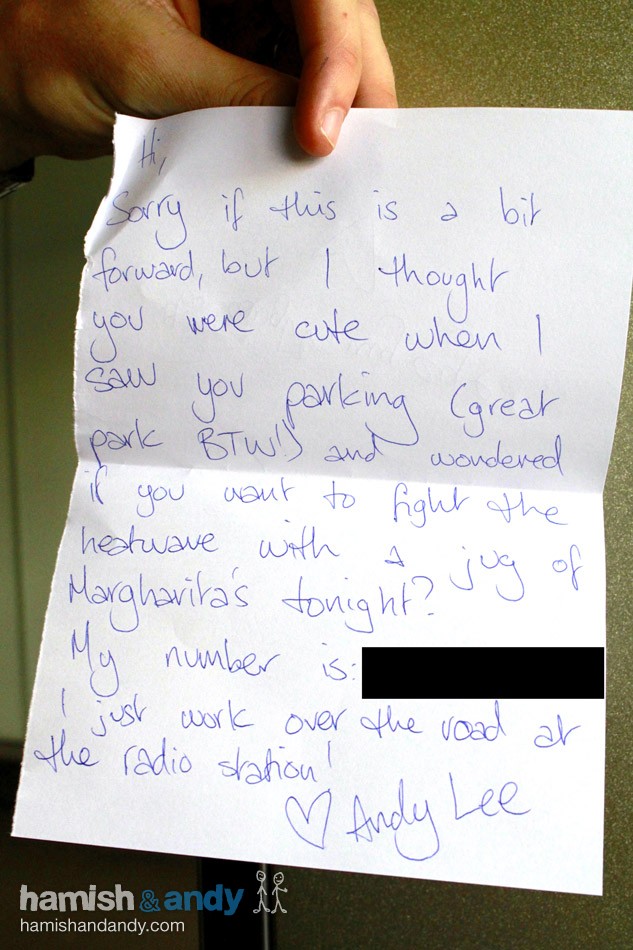 Hi,
Sorry if this is a bit
forward, but I thought
you were cute when I
saw you parking (great
park BTW!) and wondered
if you want to fight the
heatwave with a jug of
Margharita's tonight?
My number is:
I just work over the road at
the radio station!
♡ Andy Lee
hamish & andy
hamishandandy.com